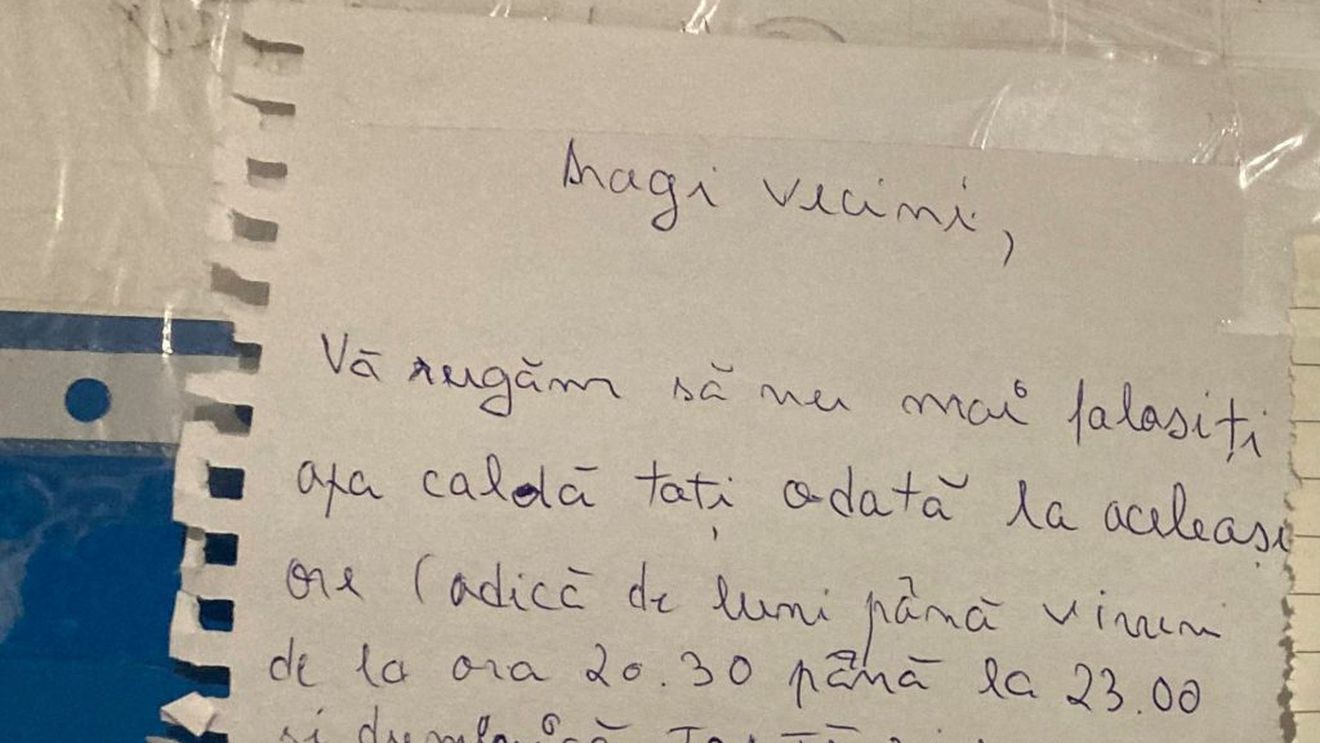 Dragi vecini,
Vă rugăm să nu mai folosiți
apa caldă toți odată la aceleași
ore (adică de luni până vineri
de la ora 20.30 până la 23.00
și duminică